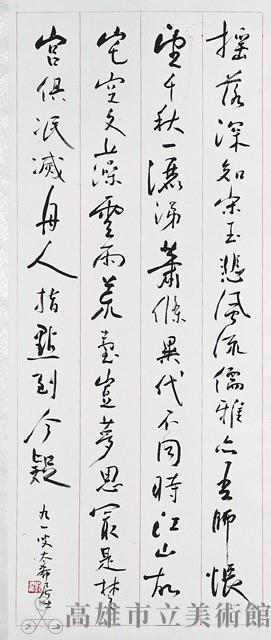 搖落深知宋玉悲風流儒雅亦吾師悵
望千秋一灑涕蕭條異代不同時江山故
宅空文藻雲雨荒臺豈夢思最是楚
宮俱泯滅舟人指點到今疑
九一叟太希
高雄市立美術館